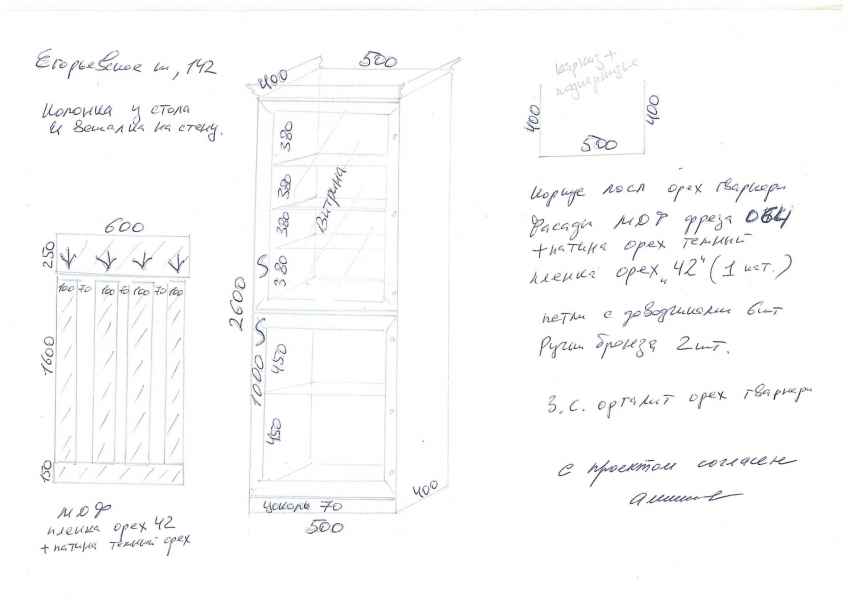 Егорьевское ш, 142
Колонка у стола
и вешалка на стену.
500
400
380
380
Витрина
380
380
2600
1000
450
450
Цоколь 70
500
400
600
250
100 70 100 70 100 70 100
1600
150
МДФ
пленка орех 42
+ патина темный орех
карниз +
400
400
500
Корпус лдсп орех гварнери
Фасады МДФ фреза 064
+ патина орех темный
пленка орех „42“ (1 кат.)
петли с доводчиками 6шт
Ручки бронза 2шт.
З.С. оргалит орех гварнери
с проектом согласен